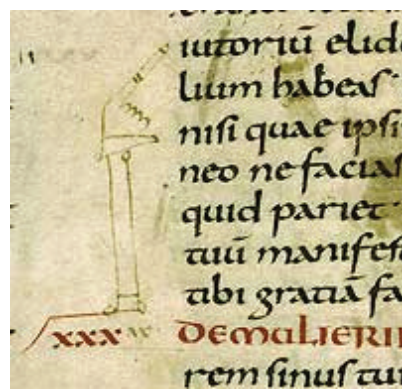 iutoriū elid
lium habeas
nisi quae ipsi
neo ne facias
quid pariet
tuū manifes
tibi gratiā fa
xxx DE MULIERIB
rem sinus tu